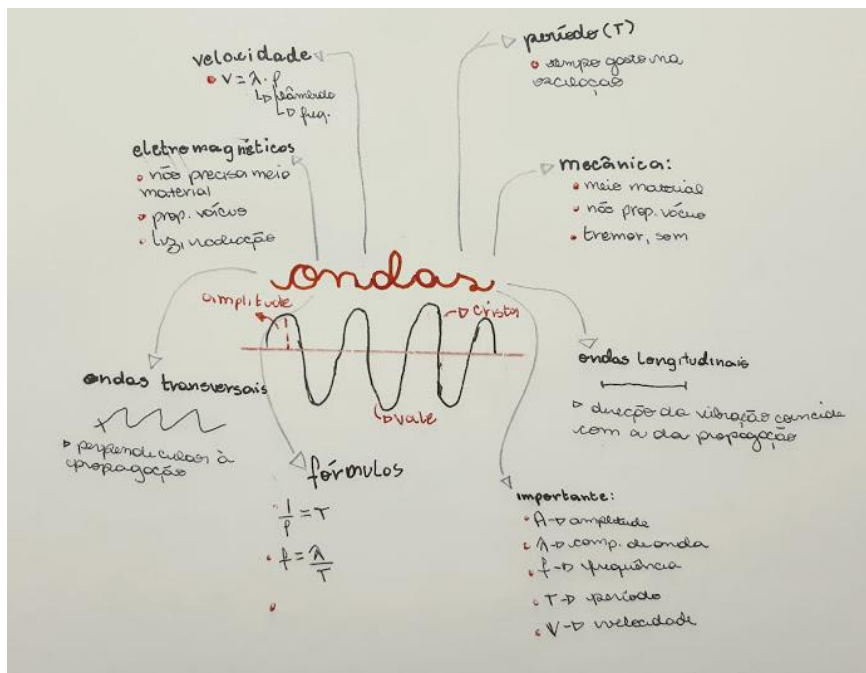 velocidade
• V = λ · f
↳ lâmbda
↳ freq.
período (T)
• tempo gasto na
oscilação
eletromagnéticos
• não precisa meio
material
• prop. vácuo
• luz, radiação
mecânica:
• meio material
• não prop. vácuo
• tremor, som
ondas
amplitude
crista
vale
ondas transversais
▷ perpendicular à
propagação
ondas longitudinais
▷ direção da vibração coincide
com a da propagação
fórmulas
• 1/f = T
• f = λ/T
•
importante:
• A → amplitude
• λ → comp. de onda
• f → frequência
• T → período
• V → velocidade